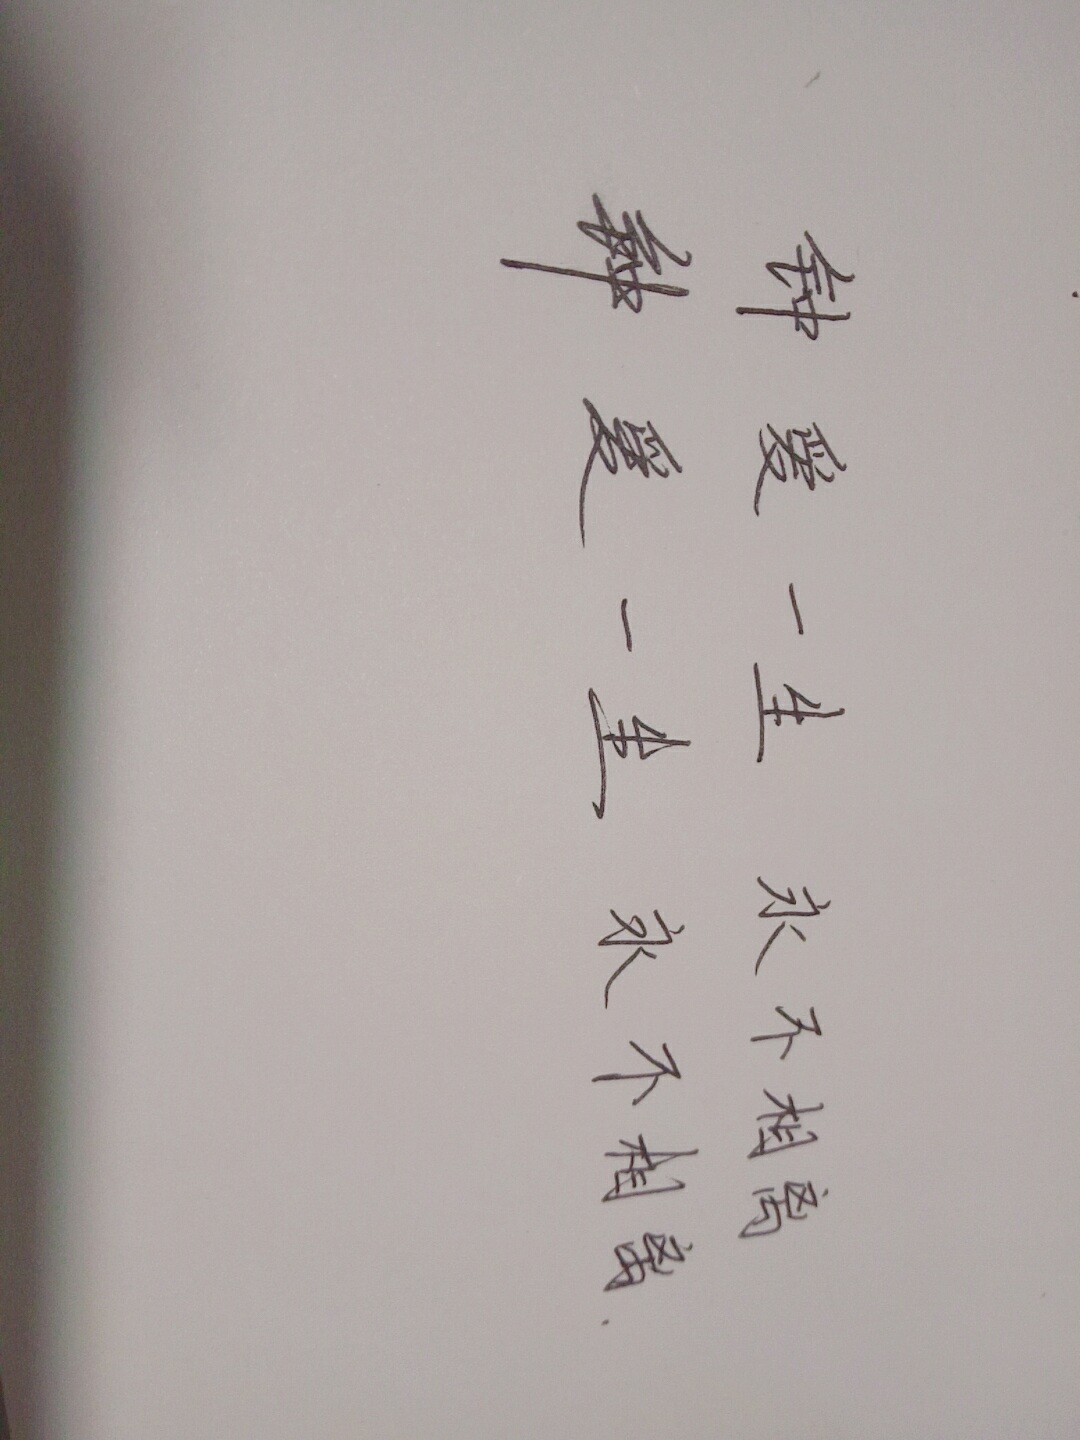 钟爱一生 永不相离
钟爱一生 永不相离